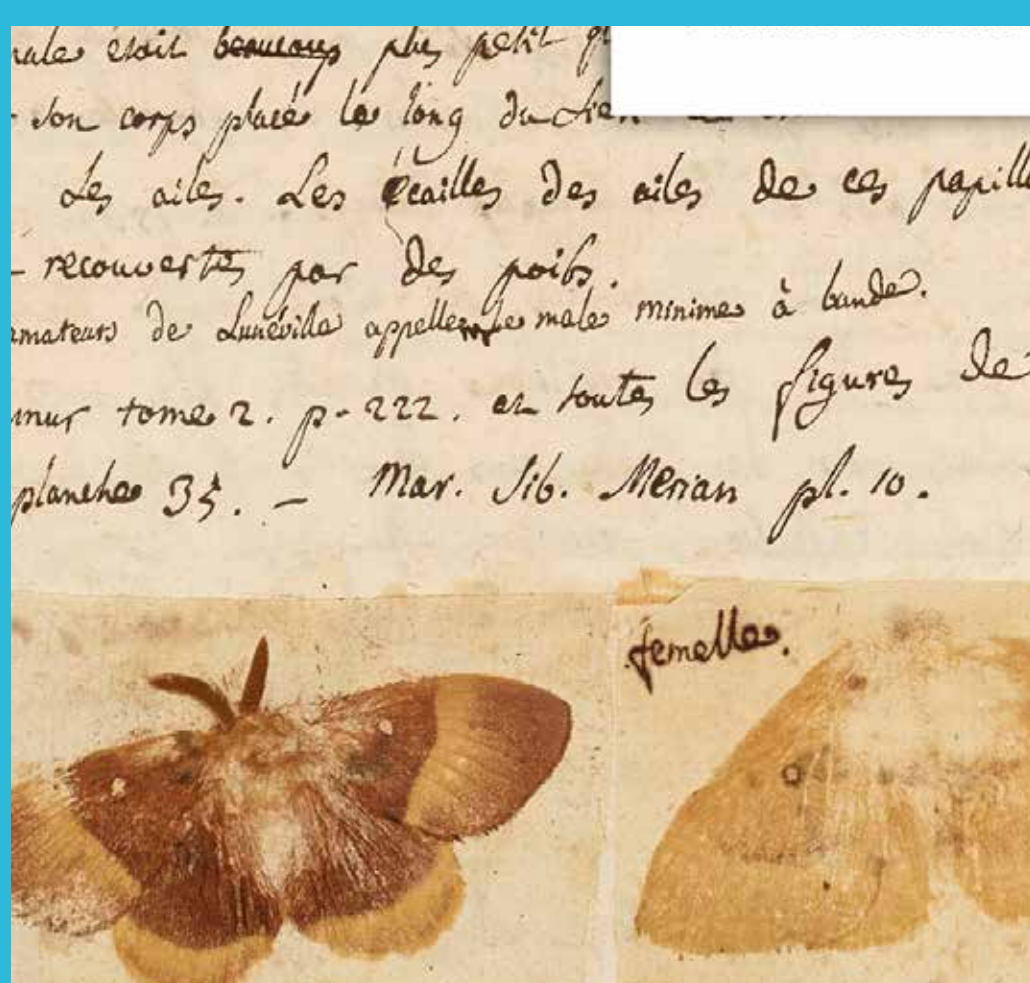 male étoit beaucoup plus petit
son corps placé le long du sien
Les ailes. Les écailles des ailes de ces papill
recouvertes par des poils.
amateurs de Lunéville appellent le male minime à bande.
mur tome 2. p. 222. et toutes les figures de
planche 35. – Mar. Sib. Merian pl. 10.
femelle.